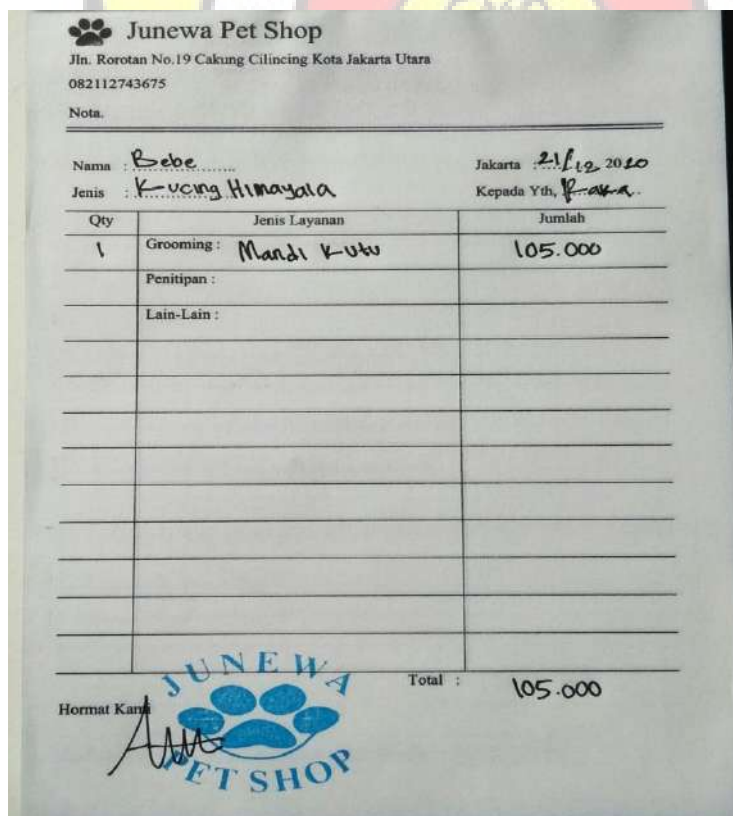 Junewa Pet Shop
Jln. Rorotan No.19 Cakung Cilincing Kota Jakarta Utara
082112743675
Nota.
Nama : Bebe Jakarta : 21/12 2020
Jenis : Kucing Himayala Kepada Yth, Raka
Qty Jenis Layanan Jumlah
1 Grooming : Mandi Kutu 105.000
Penitipan :
Lain-Lain :
Total : 105.000
Hormat Kami
JUNEWA
PET SHOP